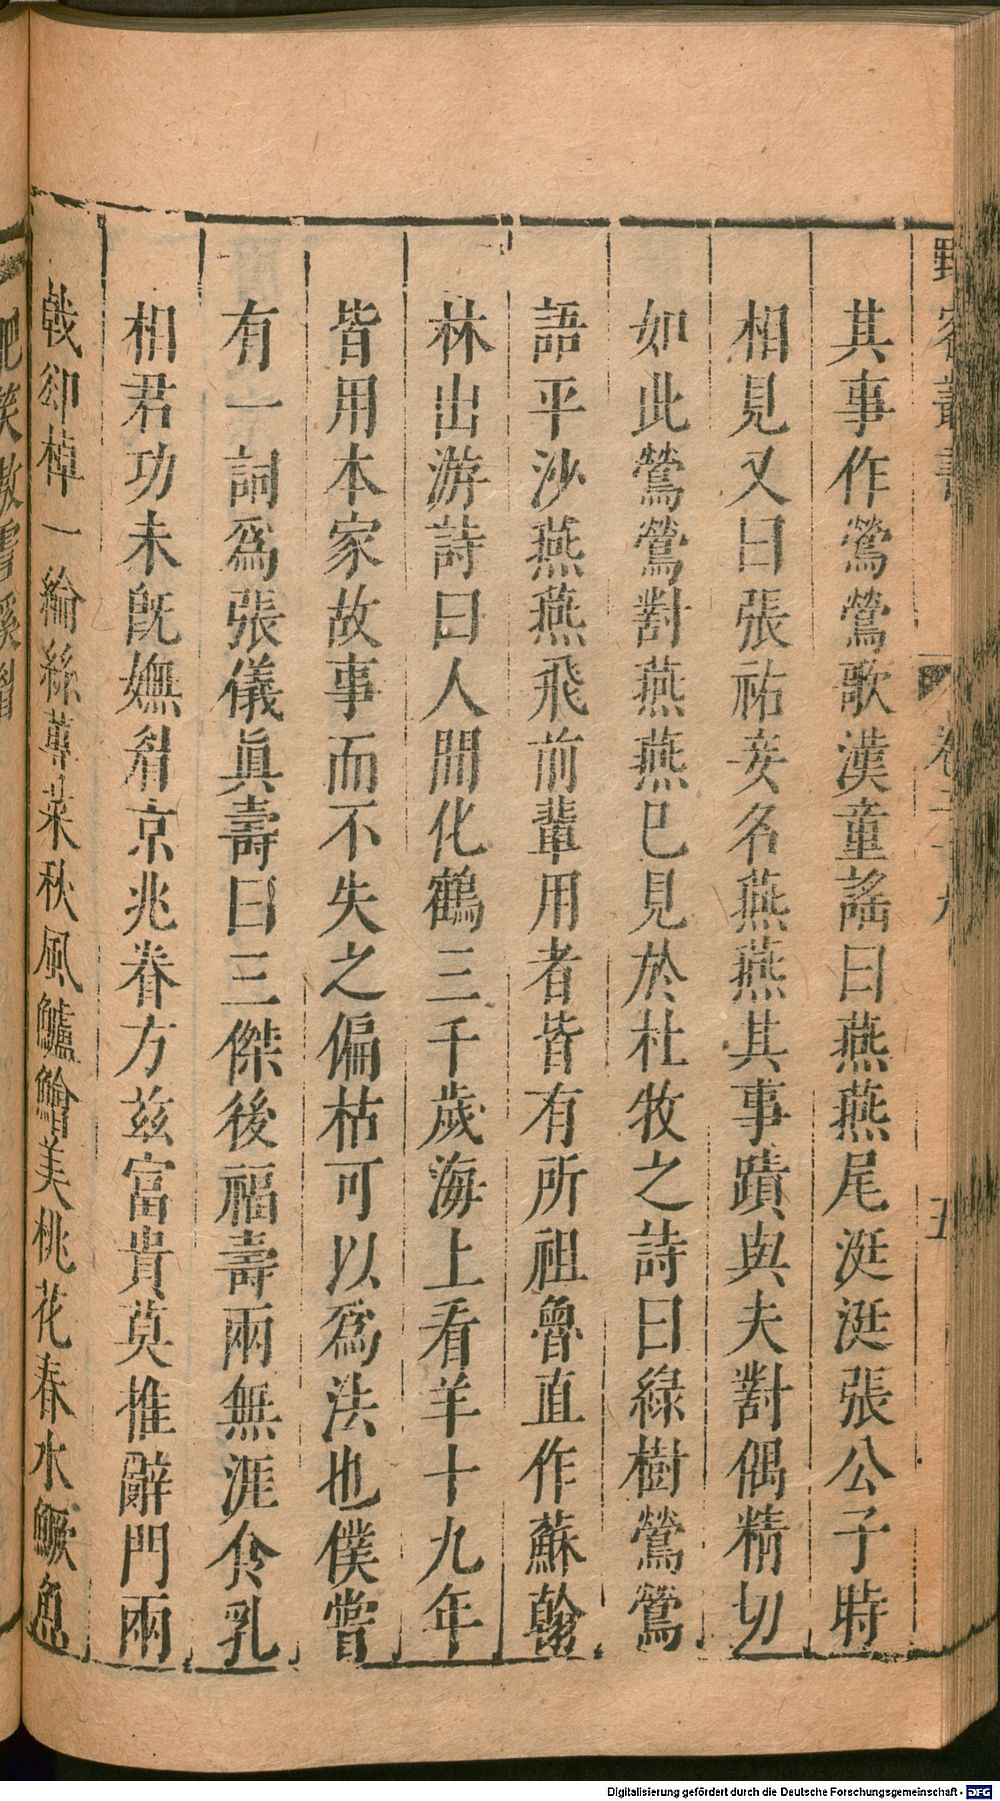 野客叢書
其事作鶯鶯歌漢童謠曰燕燕尾涎涎張公子時
相見又曰張祐妾名燕燕其事蹟與夫對偶精切
如此鶯鶯對燕燕已見於杜牧之詩曰綠樹鶯鶯
語平沙燕燕飛前輩用者皆有所祖魯直作蘇翰
林出游詩曰人間化鶴三千歲海上看羊十九年
皆用本家故事而不失之偏枯可以為法也僕嘗
有一詞為張儀眞壽曰三傑後福壽兩無涯食乳
相君功未旣嫵眉京兆眷方茲富貴莫推辭門兩
戟卻棹一綸絲蓴菜秋風鱸鱠美桃花春水鱖魚
肥笑傲霅溪湄
Digitalisierung gefördert durch die Deutsche Forschungsgemeinschaft - DFG